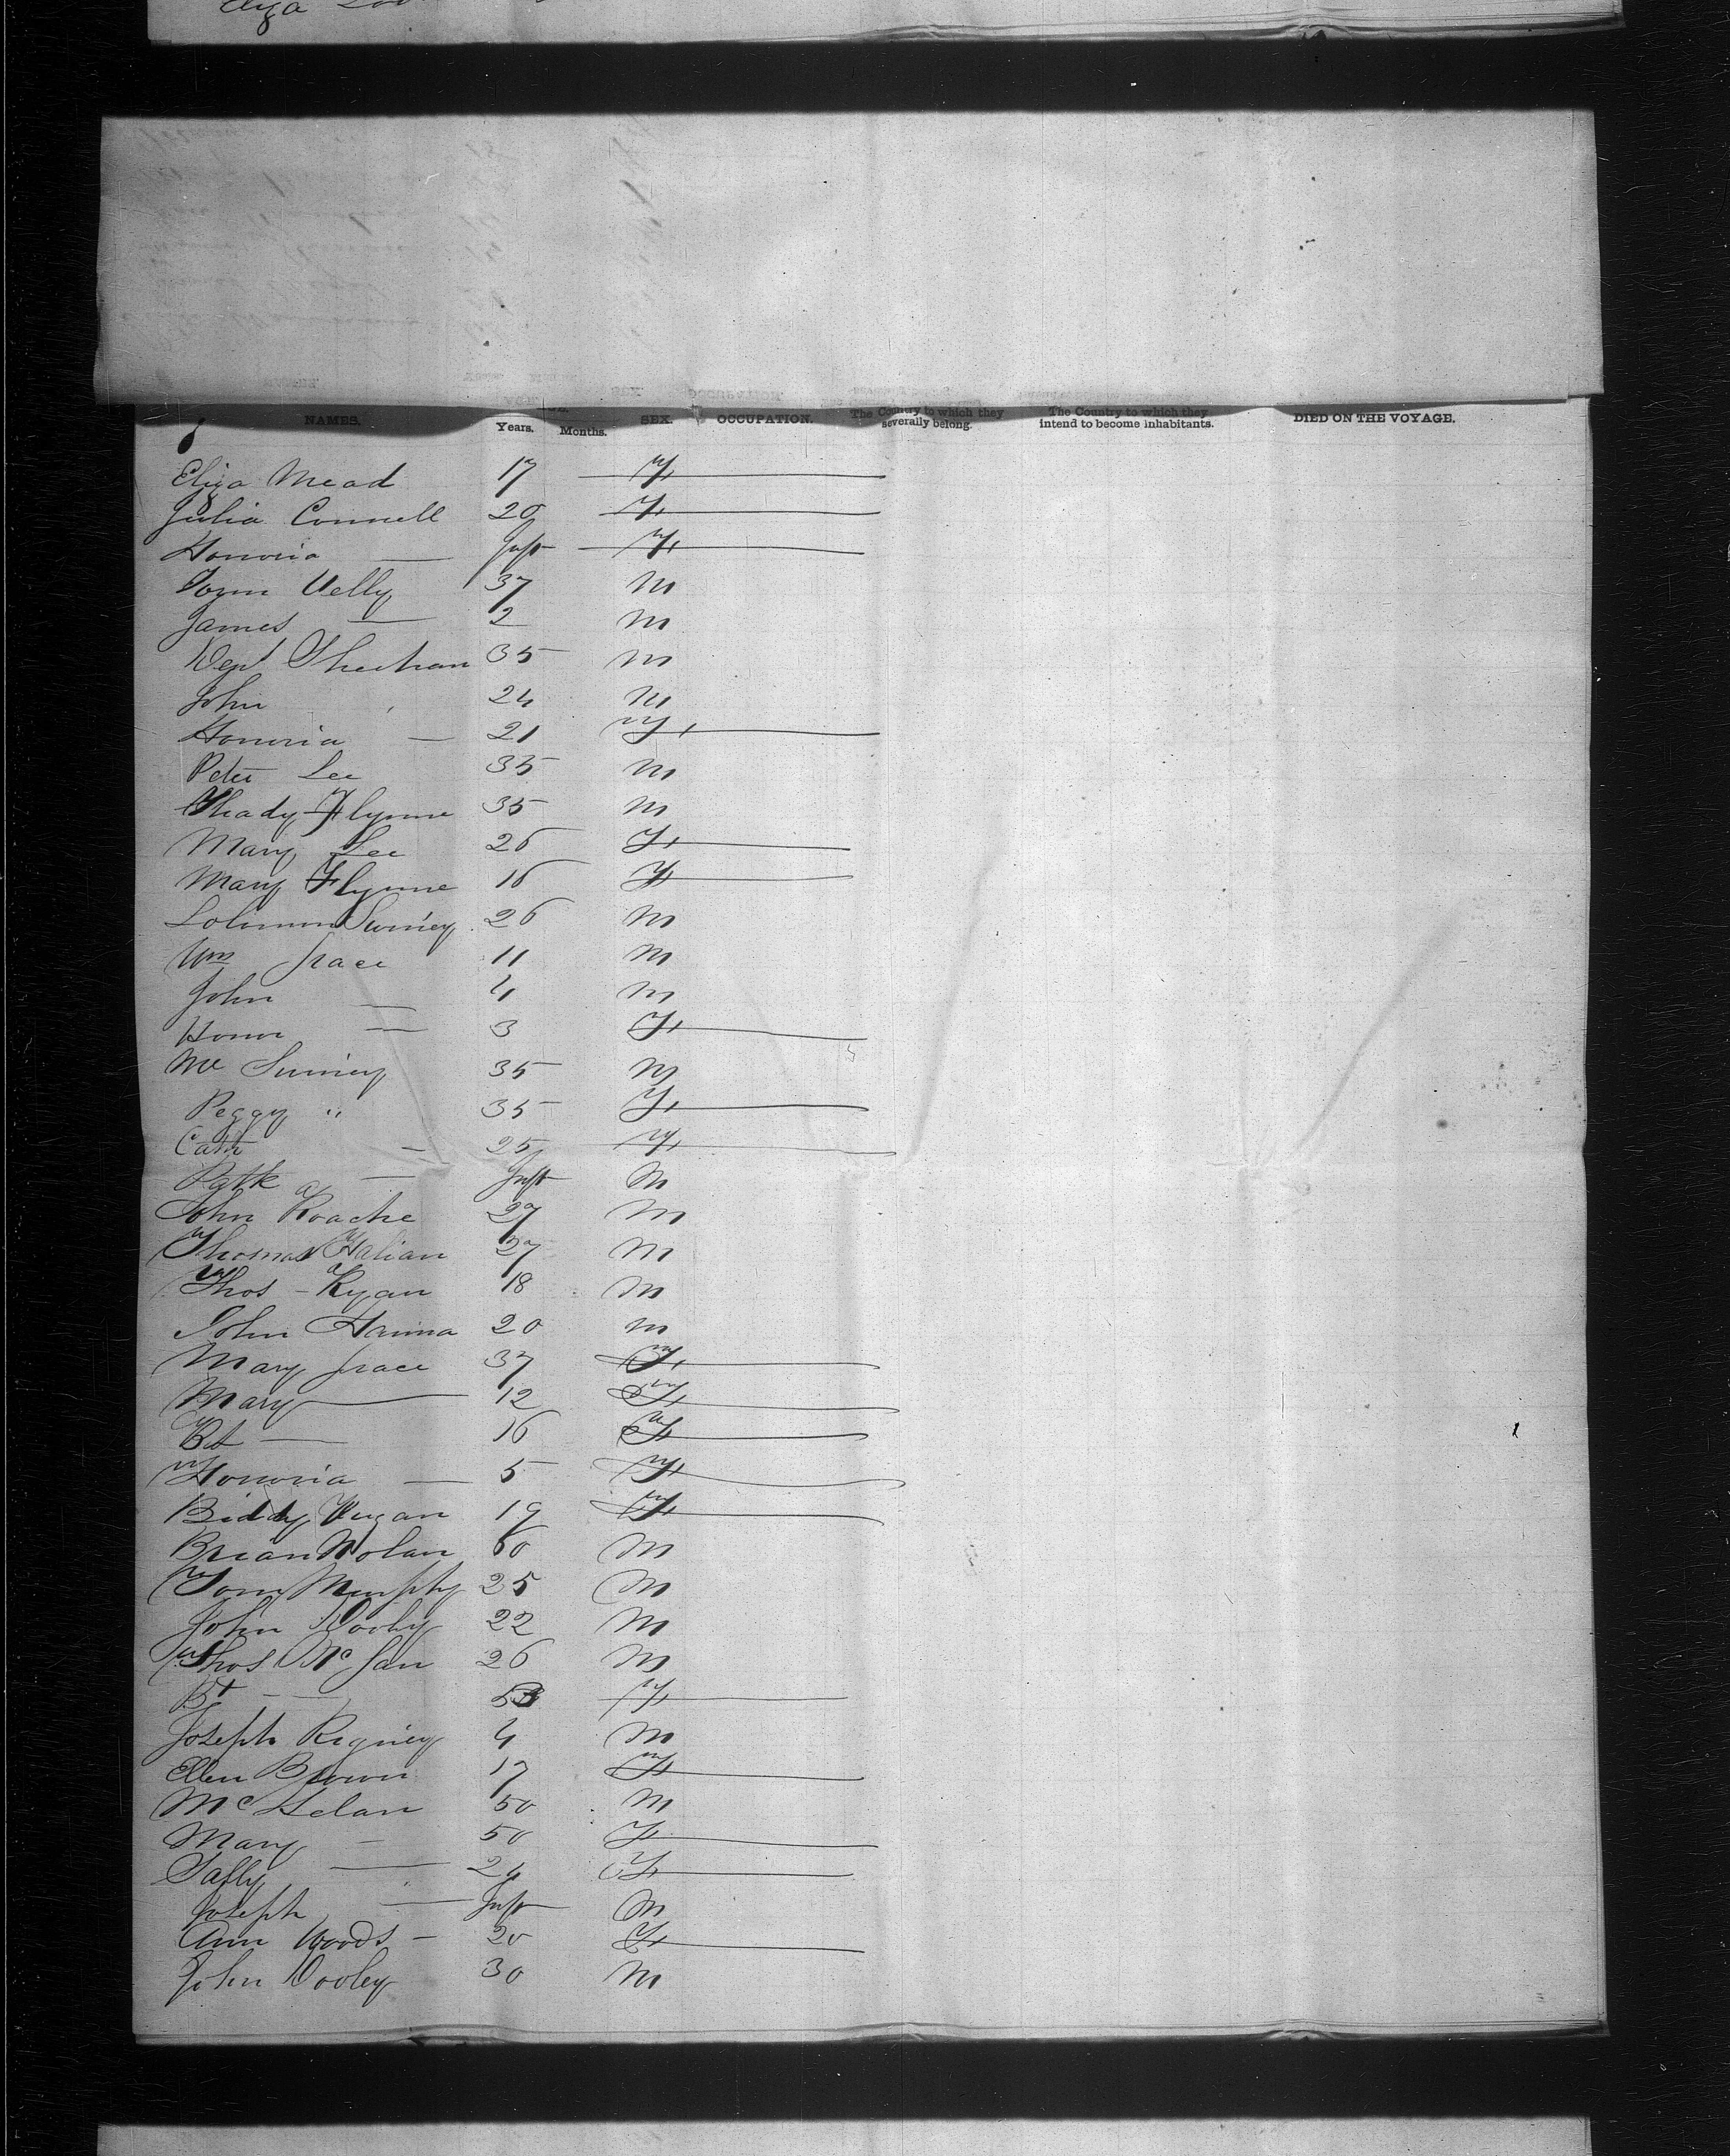 Eliza
NAMES. Years. Months. SEX. OCCUPATION. The Country to which they severally belong. The Country to which they intend to become inhabitants. DIED ON THE VOYAGE.
Eliza Mead 17 F
Julia Connell 20 F
Honoria — Inft F
37 M
James — 2 M
Sheehan 35 M
John 24 M
Honoria — 21 F
Peter Lee 35 M
Thady Flynne 35 M
Mary Lee 26 F
Mary Flynne 16 F
26 M
Wm Grace 11 M
John — 4 M
Honor — 3 F
35 M
Peggy " 35 F
Cath — 25 F
Patk — Inft M
John Roache 27 M
Thomas 27 M
Thos - Ryan 18 M
John Hanna 20 M
Mary Grace 37 F
Mary — 12 F
Bt — 16 F
Honoria — 5 F
Biddy 19 F
Brian Nolan 60 M
Tom Murphy 25 M
John Dooly 22 M
Thos 26 M
Bt — F
Joseph Rigney 4 M
Ellen Brown 17 F
50 M
Mary — 50 F
24 F
Joseph — Inft M
Ann Woods — 20 F
John Dooley 30 M